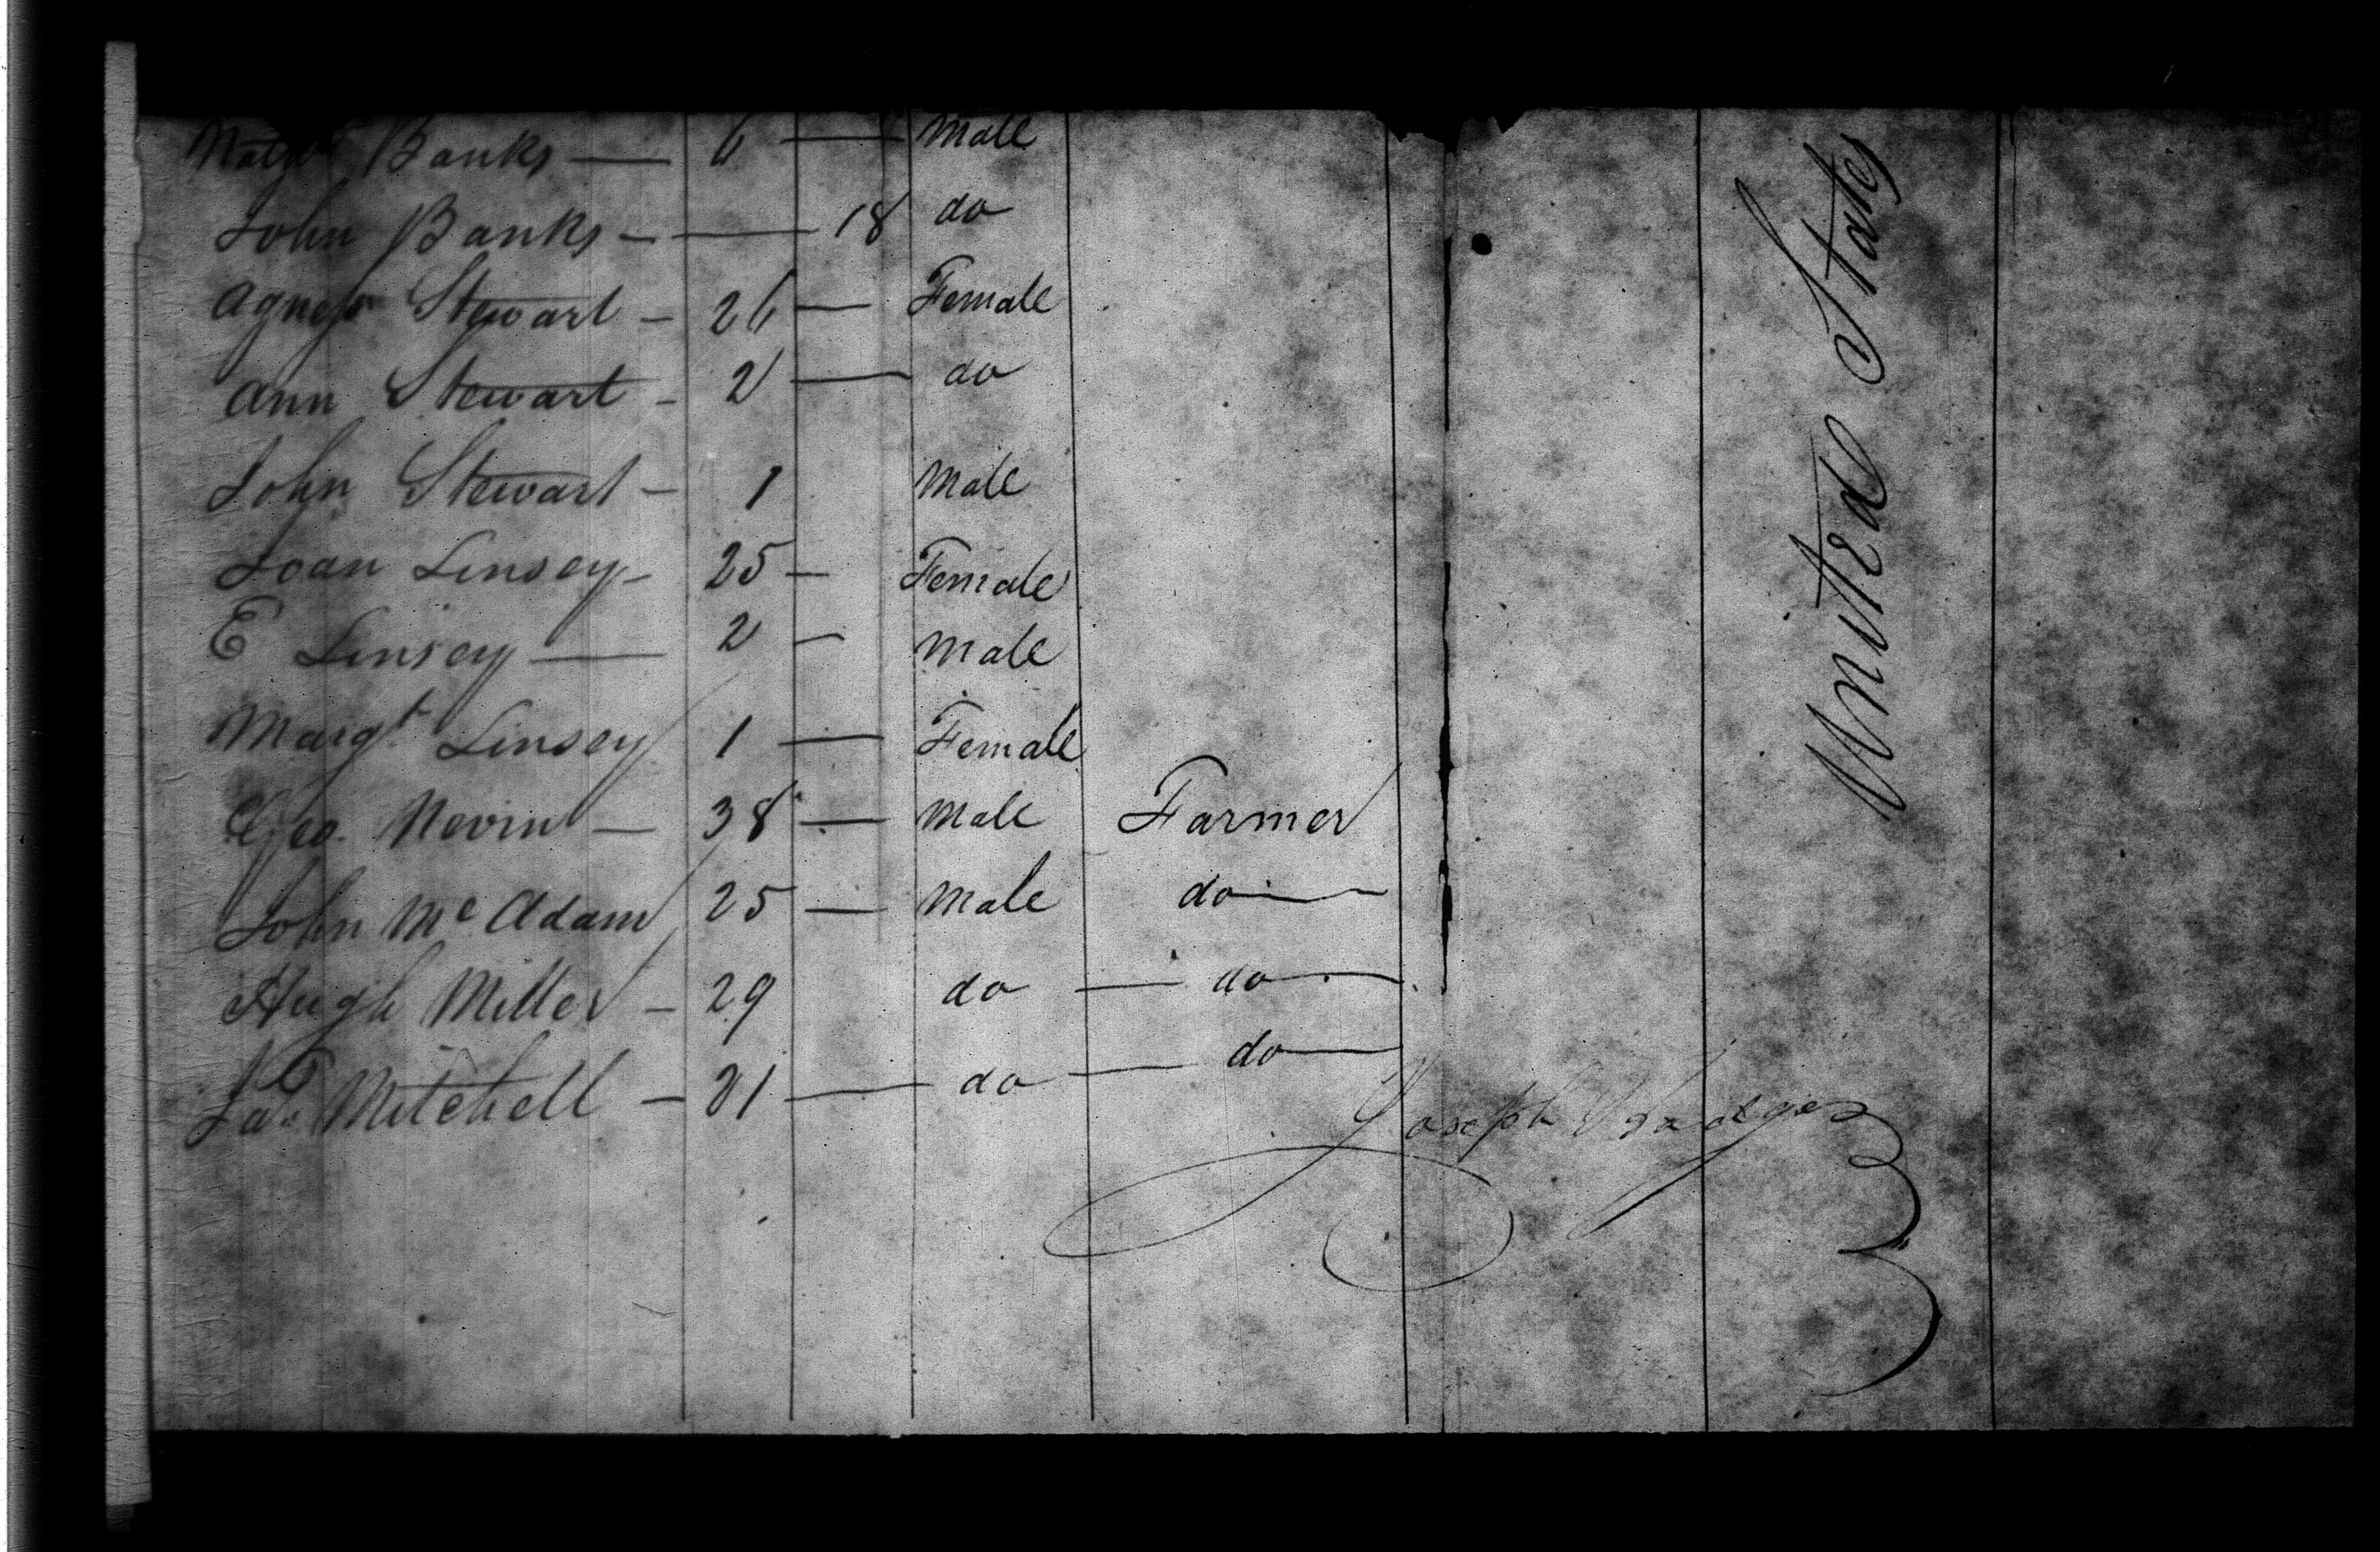 Banks — 6 — Male
John Banks — 18 do
Agness Stewart — 26 — Female
Ann Stewart — 2 — do
John Stewart — 1 Male
Joan Linsey — 25 — Female
E Linsey — 2 — Male
Margt Linsey 1 — Female
Geo. Nevin — 38 — Male Farmer
John Mc Adam 25 — Male do —
Hugh Miller — 29 do — do —
Jas Mitchell — 21 — do — do —
Joseph
United States